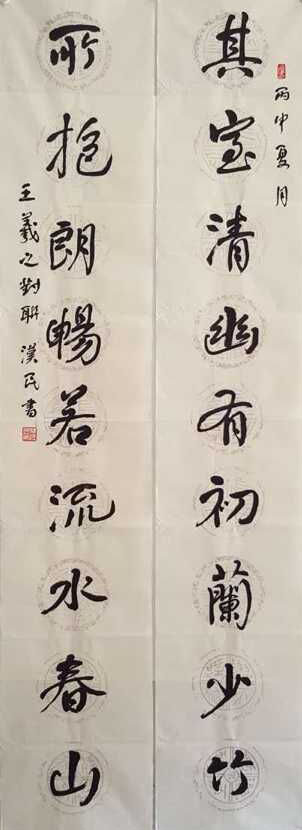 丙申夏月
其室清幽有初蘭少竹
所抱朗暢若流水春山
王羲之對聯 漢民書